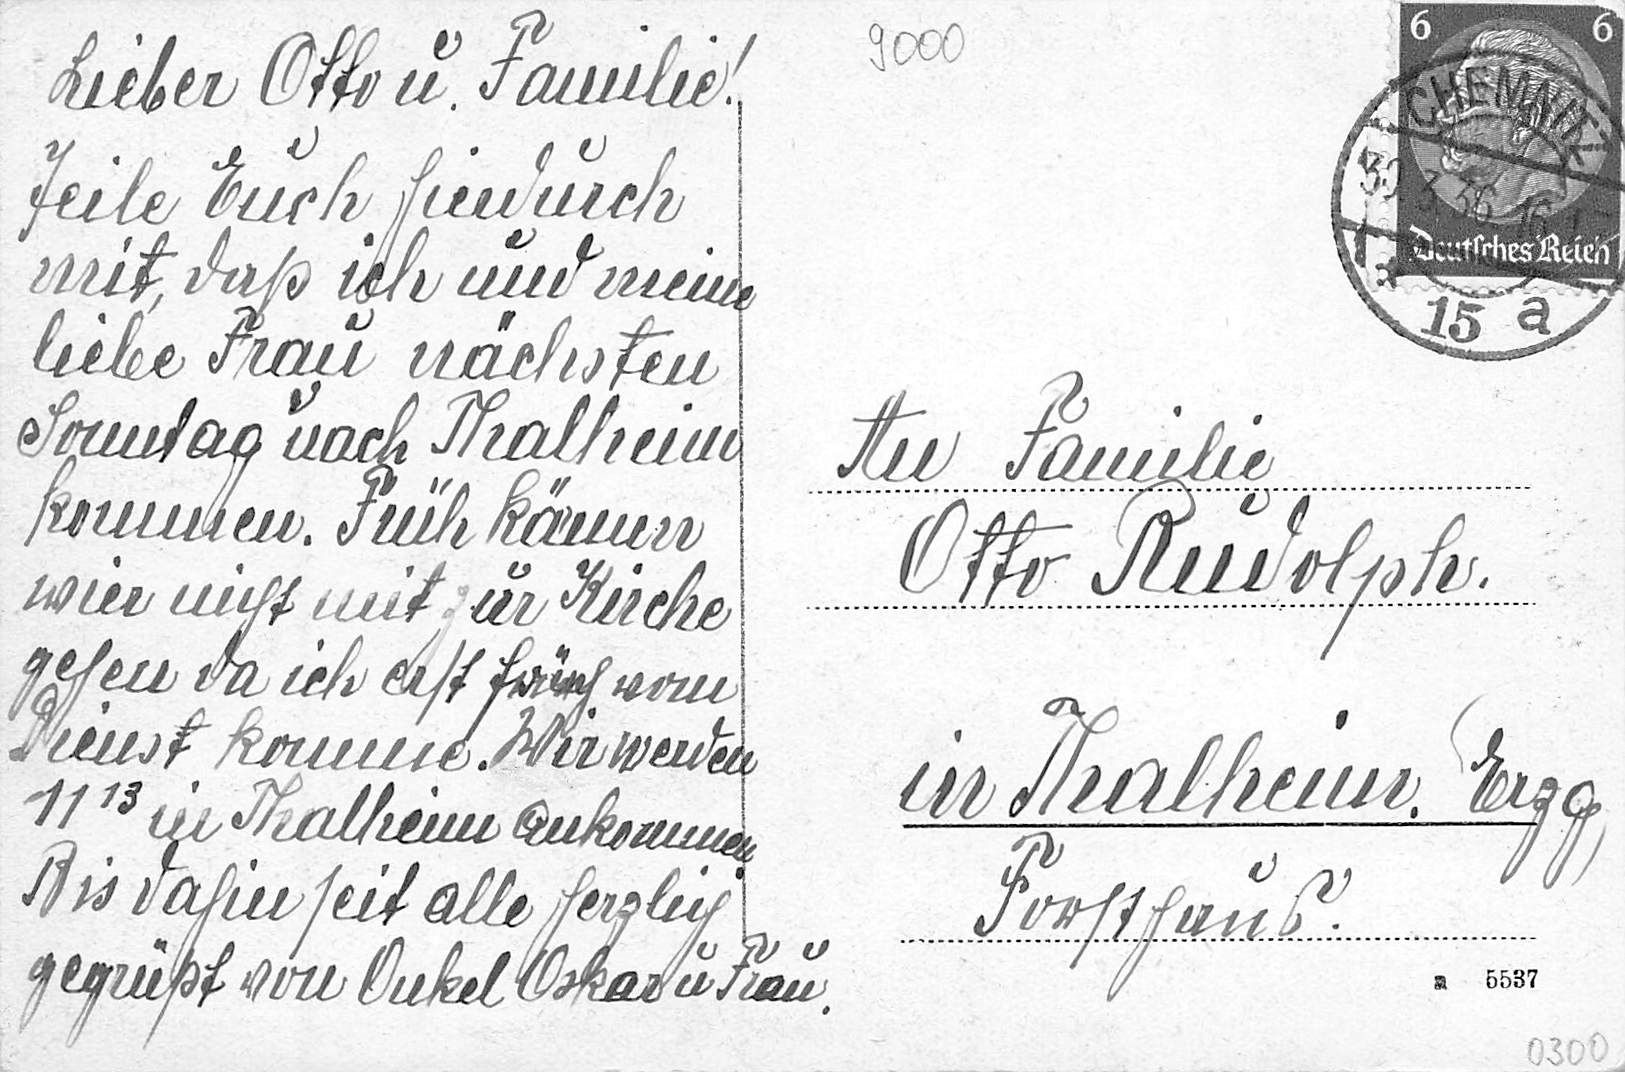 Lieber Otto u. Familie!
Teile Euch hiedurch
mit, daß ich und meine
liebe Frau nächsten
Sonntag nach Thalheim
kommen. Früh kämen
wier nicht mit zur Kirche
gehen da ich erst früh vom
Dienst komme. Wir werden
11 13 in Thalheim ankommen.
Bis dahin seit alle herzlich
gegrüßt von Onkel Oskar u Frau.
9000
6 6
Deutsches Reich
CHEMNITZ
3.36.16
15 a
An Familie
Otto Rudolph.
in Thalheim. Erzg,
Forsthaus.
a 5537
0300